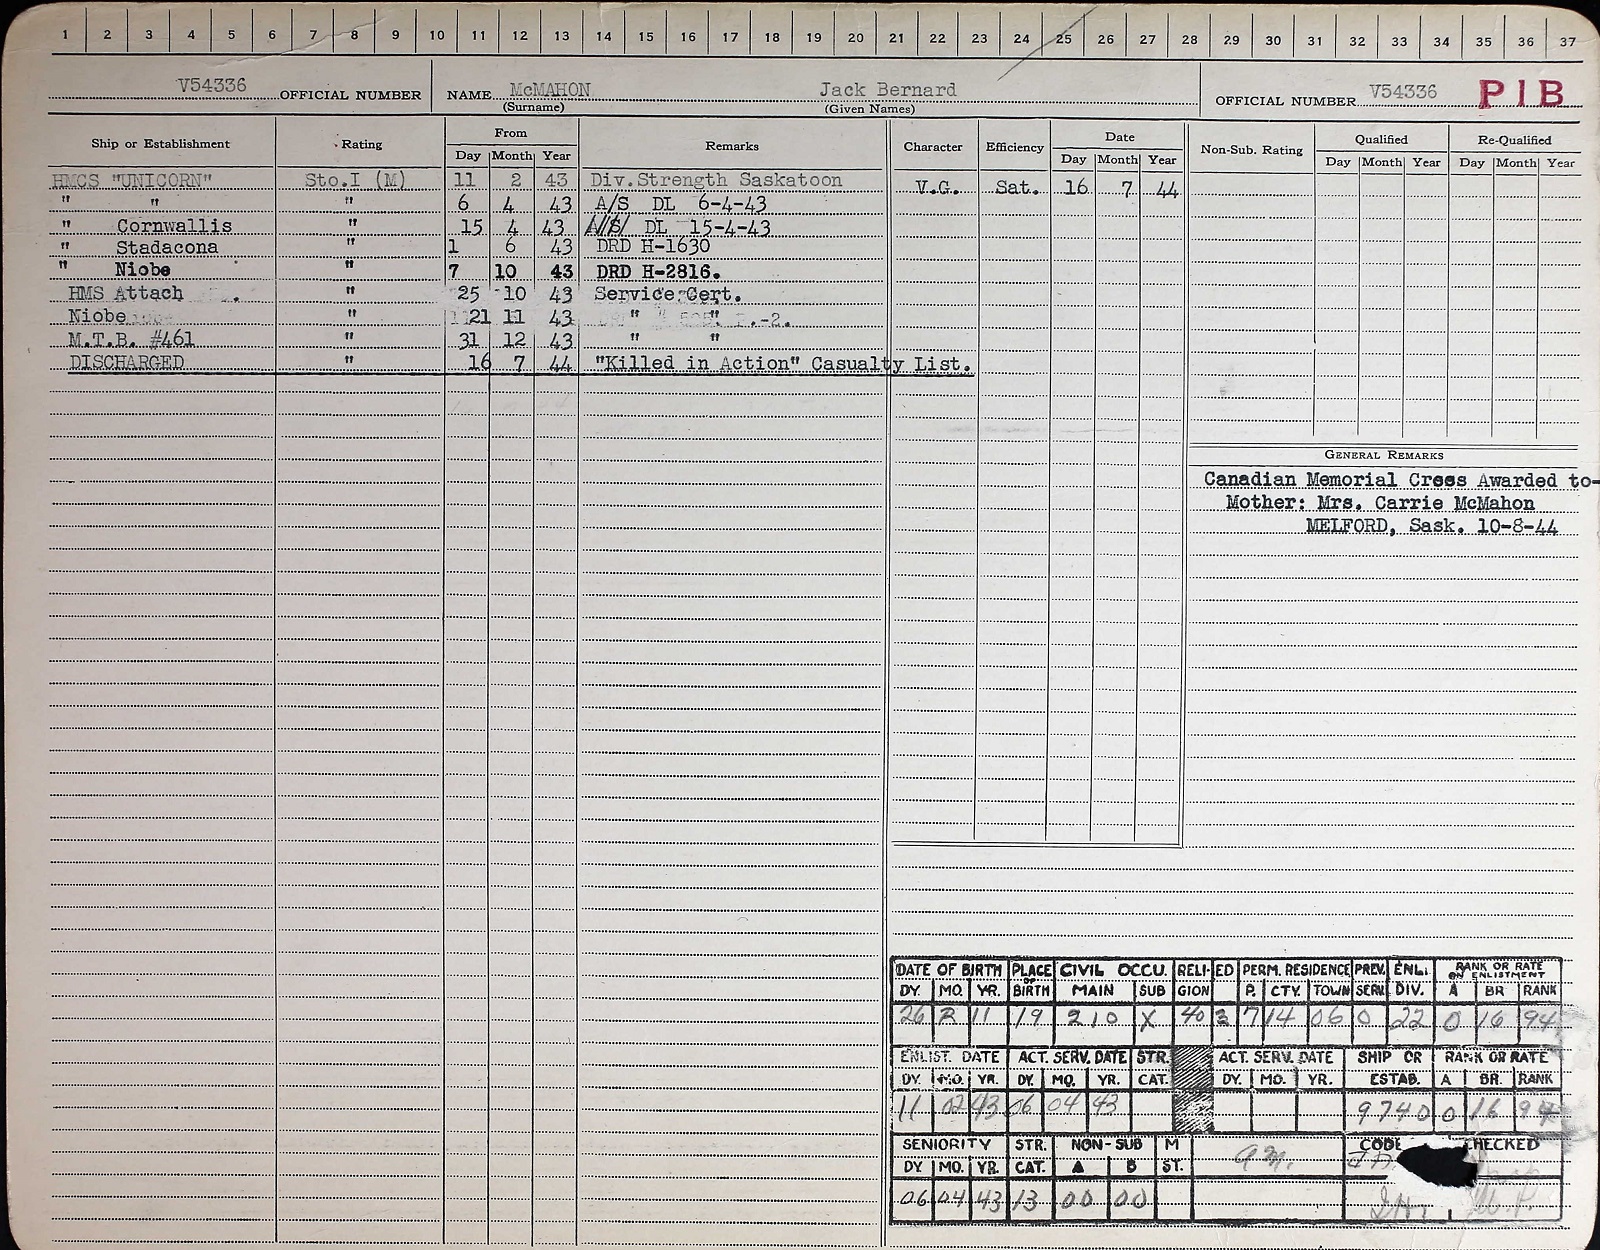 1 2 3 4 5 6 7 8 9 10 11 12 13 14 15 16 17 18 19 20 21 22 23 24 25 26 27 28 29 30 31 32 33 34 35 36 37
V54336 OFFICIAL NUMBER NAME McMAHON Jack Bernard OFFICIAL NUMBER V54336 P1B
(Surname) (Given Names)
Ship or Establishment Rating From Remarks Character Efficiency Date Non-Sub. Rating Qualified Re-Qualified
Day Month Year Day Month Year Day Month Year Day Month Year
HMCS "UNICORN" Sto.I (M) 11 2 43 Div.Strength Saskatoon V.G. Sat. 16 7 44
" " " 6 4 43 A/S DL 6-4-43
" Cornwallis " 15 4 43 A/S/ DL 15-4-43
" Stadacona " 1 6 43 DRD H-1630
" Niobe " 7 10 43 DRD H-2816.
HMS Attach . " 25 10 43 Service Cert.
Niobe " 21 11 43 " " -2.
M.T.B. #461 " 31 12 43 " "
DISCHARGED " 16 7 44 "Killed in Action" Casualty List.
GENERAL REMARKS
Canadian Memorial Cross Awarded to-
Mother: Mrs. Carrie McMahon
MELFORD, Sask. 10-8-44
DATE OF BIRTH PLACE OF BIRTH CIVIL OCCU. RELIGION ED PERM. RESIDENCE PREV. SERV. ENLI. DIV. RANK OR RATE ON ENLISTMENT
DY. MO. YR. MAIN SUB P. CTY. TOWN A BR RANK
26 R 11 19 210 X 40 3 7 14 06 0 22 0 16 94
ENLIST. DATE ACT. SERV. DATE STR. ACT. SERV. DATE SHIP OR RANK OR RATE
DY. MO. YR. DY. MO. YR. CAT. DY. MO. YR. ESTAB. A BR. RANK
11 02 43 06 04 43 9740 0 16 94
SENIORITY STR. NON-SUB M CODE CHECKED
DY MO. YR. CAT. A B ST.
06 04 43 13 00 00